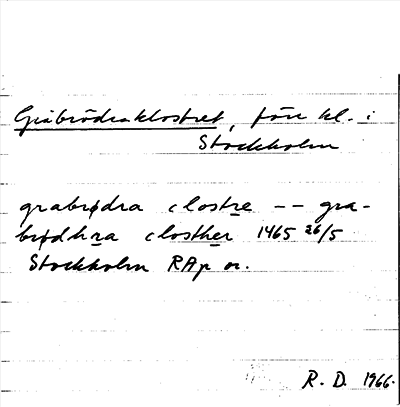 Gråbrödraklostret, förr kl. i
Stockholm
grabrødra clostre -- gra-
brødhra closther 1465 26/5
Stockholm RAp or.
R. D. 1966.